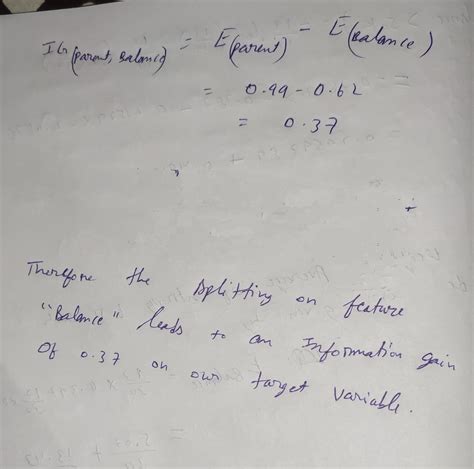 IG(parent, Balance) = E(parent) - E(Balance)
= 0.99 - 0.62
= 0.37
Therefore the splitting on feature
"Balance" leads to an Information gain
of 0.37 on our target variable.